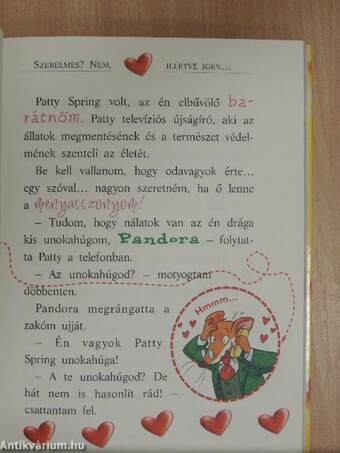 SZERELMES? NEM, ILLETVE IGEN...
Patty Spring volt, az én elbűvölő ba-
rátnőm. Patty televíziós újságíró, aki az
állatok megmentésének és a természet védel-
mének szenteli az életét.
Be kell vallanom, hogy odavagyok érte...
egy szóval... nagyon szeretném, ha ő lenne
a menyasszonyom!
– Tudom, hogy nálatok van az én drága
kis unokahúgom, Pandora – folytat-
ta Patty a telefonban.
– Az unokahúgod? – motyogtam
döbbenten.
Pandora megrángatta a
zakóm ujját.
– Én vagyok Patty
Spring unokahúga!
– A te unokahúgod? De
hát nem is hasonlít rád! –
csattantam fel.
Hmmm...
Antikvárium.hu